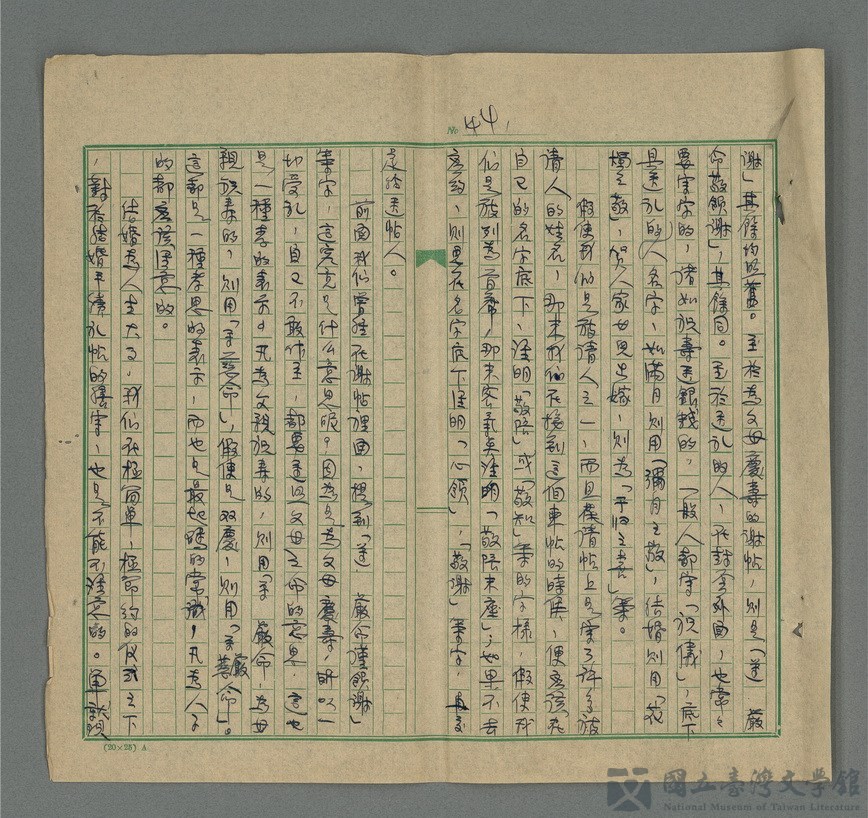 № 44,
謝」其餘均照舊。至於為父母慶壽的謝帖，則是「遵　嚴
命敬領謝」，其餘同。至於送礼的人，在封套外面，也常々
要寫字的，諸如祝壽送銀錢的，一般人都寫「祝儀」，底下
具送礼的(人)名字，如滿月則用「彌月之敬」，結婚則用「花
燭之敬」，賀人家女兒出嫁，則為「于归之喜」等。
假使我們是被請人之一，而且在請帖上是寫了許多被
請人的姓名，那末我們在接到這個柬帖的時候，便應該在
自己的名字底下，注明「敬陪」或「敬知」等的字樣，假使我
們是被列為首席，那末客氣矣注明「敬陪末座」；如果不去
應約，則要在名字底下注明「心領」，「敬謝」等字，
送帖人。
前面我们曾經在謝帖裡面，提到「遵　嚴命謹領謝」
等字，這究竟是什么意思呢？因為是為父母慶壽，所以一
切受礼，自己不敢作主，都要遵照父母之命的意思，這也
是一種孝的表示。凡為父親祝壽的，則用「奉　嚴命」，為母
親祝壽的，則用「奉慈命」，假使是双慶，則用「奉嚴慈命」。
這都是一種孝思的表示，而也是最起碼的常識，凡為人子
的都應該注意的。
結婚為人生大事，我们在極簡單，極節約的仪式之下
，對於結婚手續礼帖的繕寫，也是不能不注意的。單就
(20×25) A
國立臺灣文學館
National Museum of Taiwan Literature